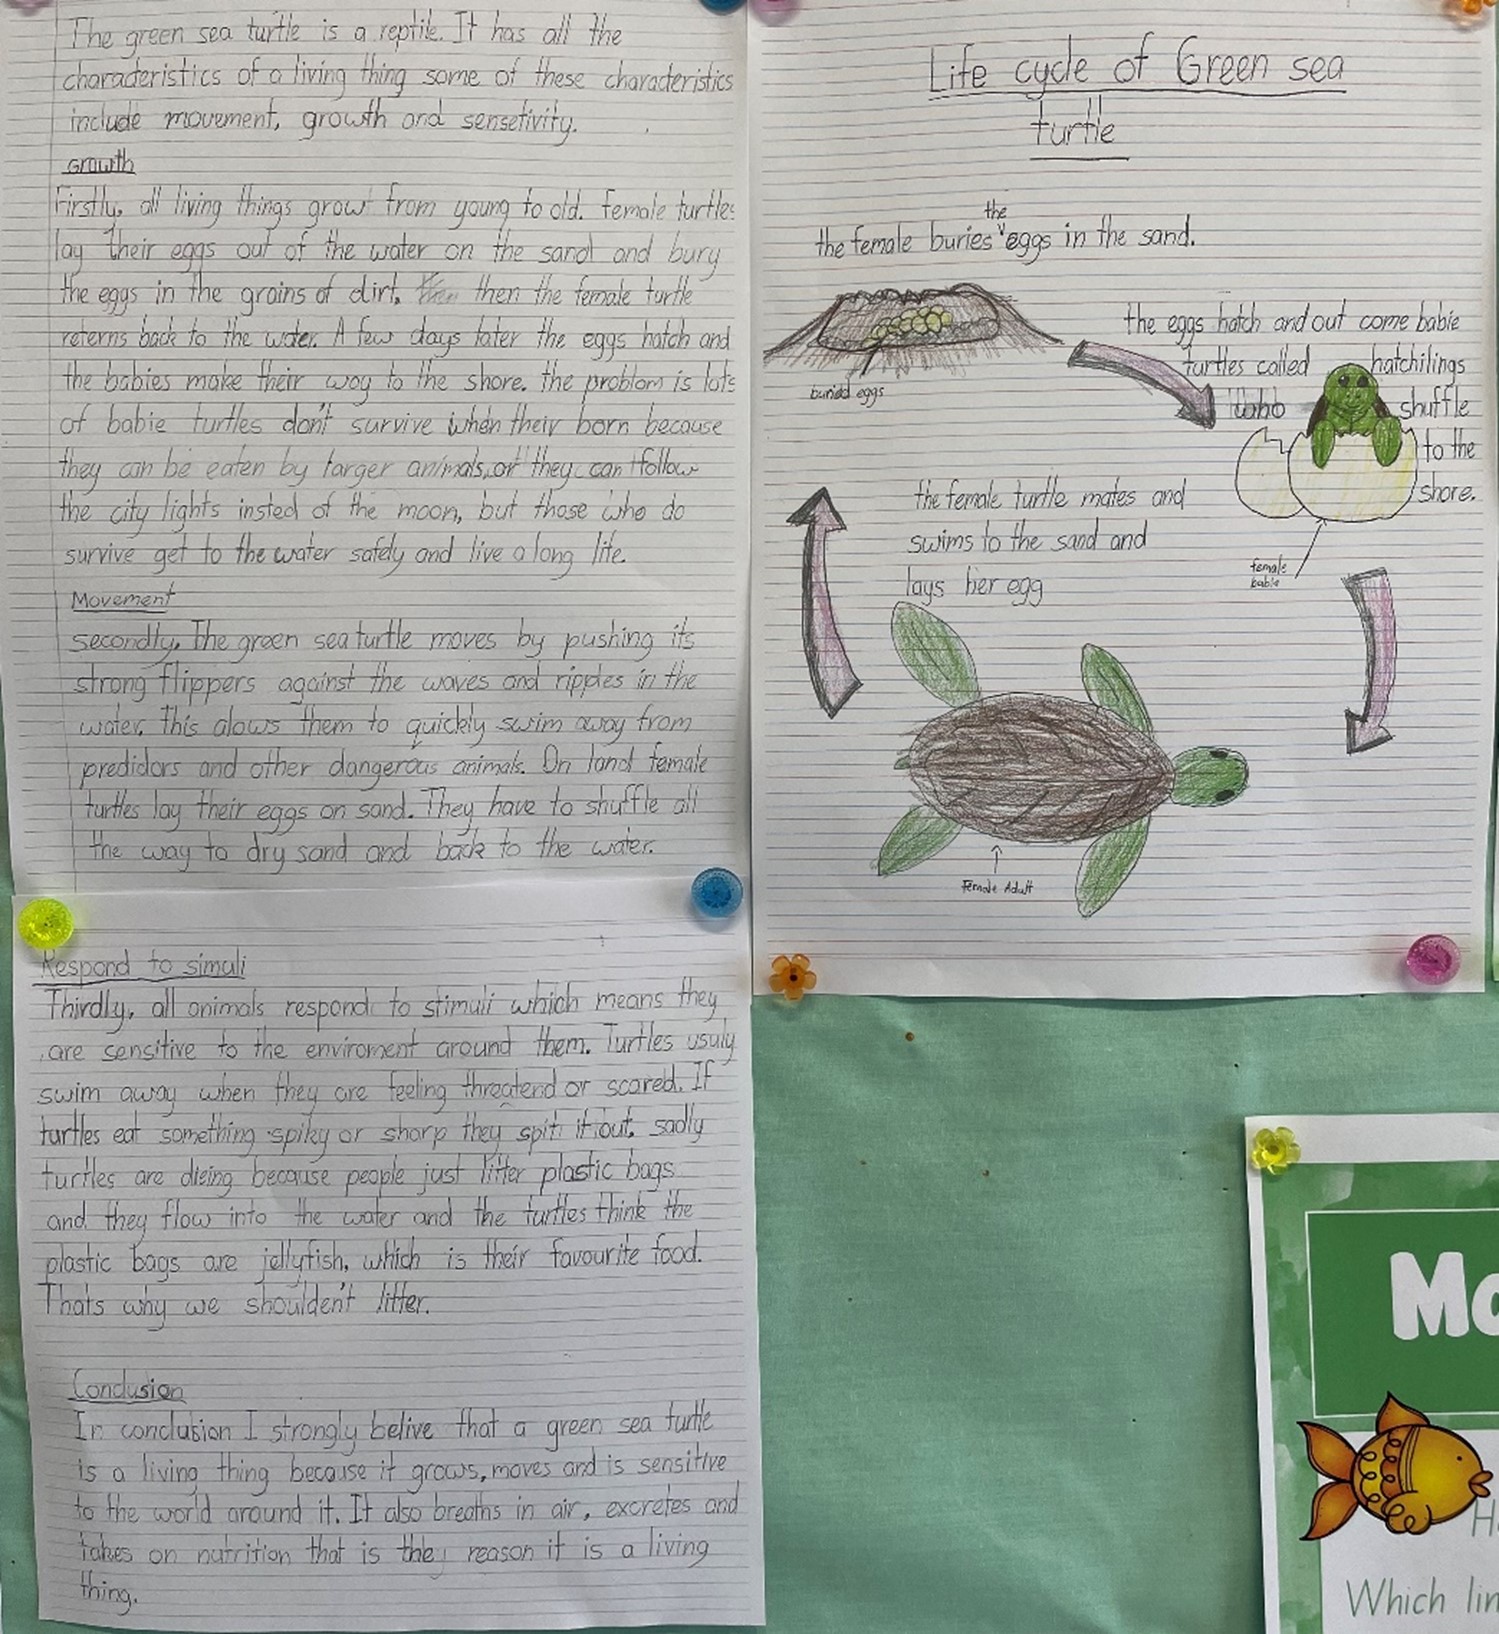 The green sea turtle is a reptile. It has all the
characteristics of a living thing some of these characteristics
include movement, growth and sensetivity.
Growth
Firstly, all living things grow from young to old. Female turtles
lay their eggs out of the water on the sand and bury
the eggs in the grains of dirt, then the female turtle
reterns back to the water. A few days later the eggs hatch and
the babies make their way to the shore. the problom is lots
of babie turtles don't survive when their born because
they can be eaten by larger animals, or they can follow
the city lights insted of the moon, but those who do
survive get to the water safely and live a long life.
Movement
Secondly, The green sea turtle moves by pushing its
strong flippers against the waves and ripples in the
water. This alows them to quickly swim away from
predidors and other dangerous animals. On land female
turtles lay their eggs on sand. They have to shuffle all
the way to dry sand and back to the water.
Respond to simuli
Thirdly, all animals respond to stimuli which means they
are sensitive to the enviroment around them. Turtles usuly
swim away when they are feeling threatend or scared. If
turtles eat something spiky or sharp they spit it out. sadly
turtles are dieing because people just litter plastic bags
and they flow into the water and the turtles think the
plastic bags are jellyfish, which is their favourite food.
Thats why we shoulden't litter.
Conclusion
In conclusion I strongly belive that a green sea turtle
is a living thing because it grows, moves and is sensitive
to the world around it. It also breaths in air, excretes and
takes on nutrition that is the reason it is a living
thing.
Life cycle of Green sea
turtle
the female buries the eggs in the sand.
buried eggs
the eggs hatch and out come babie
turtles called hatchilings
shuffle
to the
shore.
female
babie
the female turtle mates and
swims to the sand and
lays her egg
Female Adult
Mo
H
Which lin